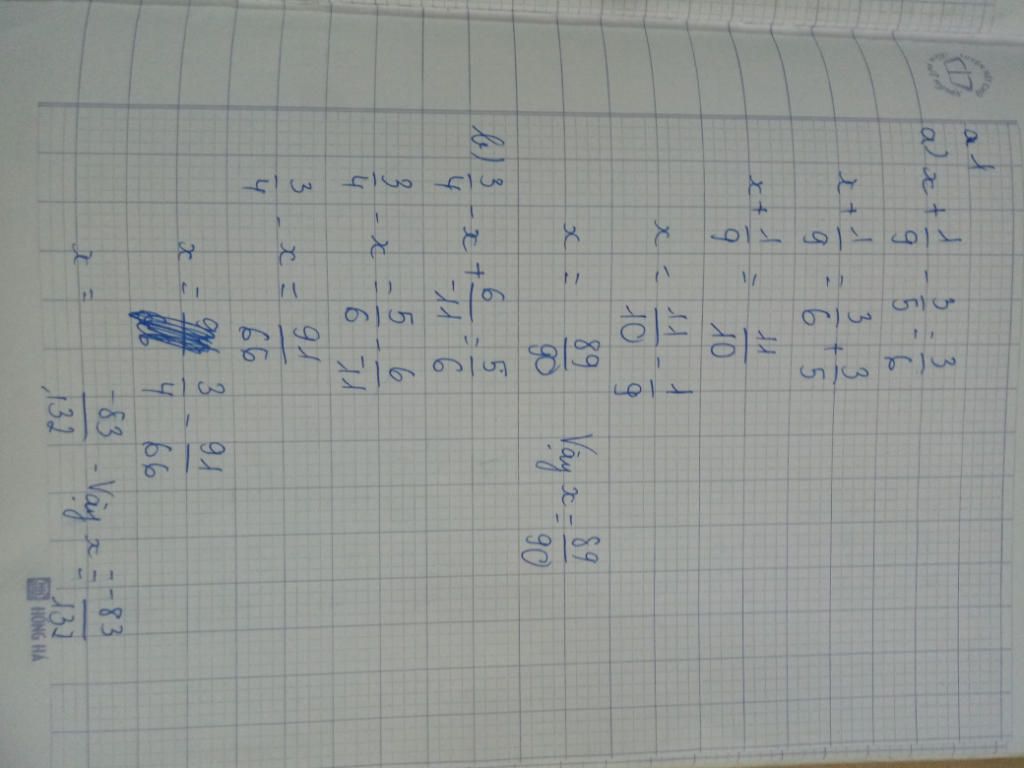 a1
a) x + 1/9 - 3/5 = 3/6
x + 1/9 = 3/6 + 3/5
x + 1/9 = 11/10
x = 11/10 - 1/9
x = 89/90 Vậy x = 89/90
b) 3/4 - x + 6/-11 = 5/6
3/4 - x = 5/6 - 6/-11
3/4 - x = 91/66
x = 3/4 - 91/66
x = -83/132 - Vậy x = -83/132
HONG HA